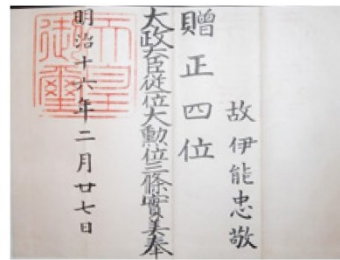 故伊能忠敬
贈正四位
太政大臣従一位大勲位三條實美奉
明治十六年二月廿七日
天皇御璽